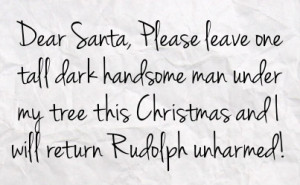 Dear Santa, Please leave one
tall dark handsome man under
my tree this Christmas and I
will return Rudolph unharmed!